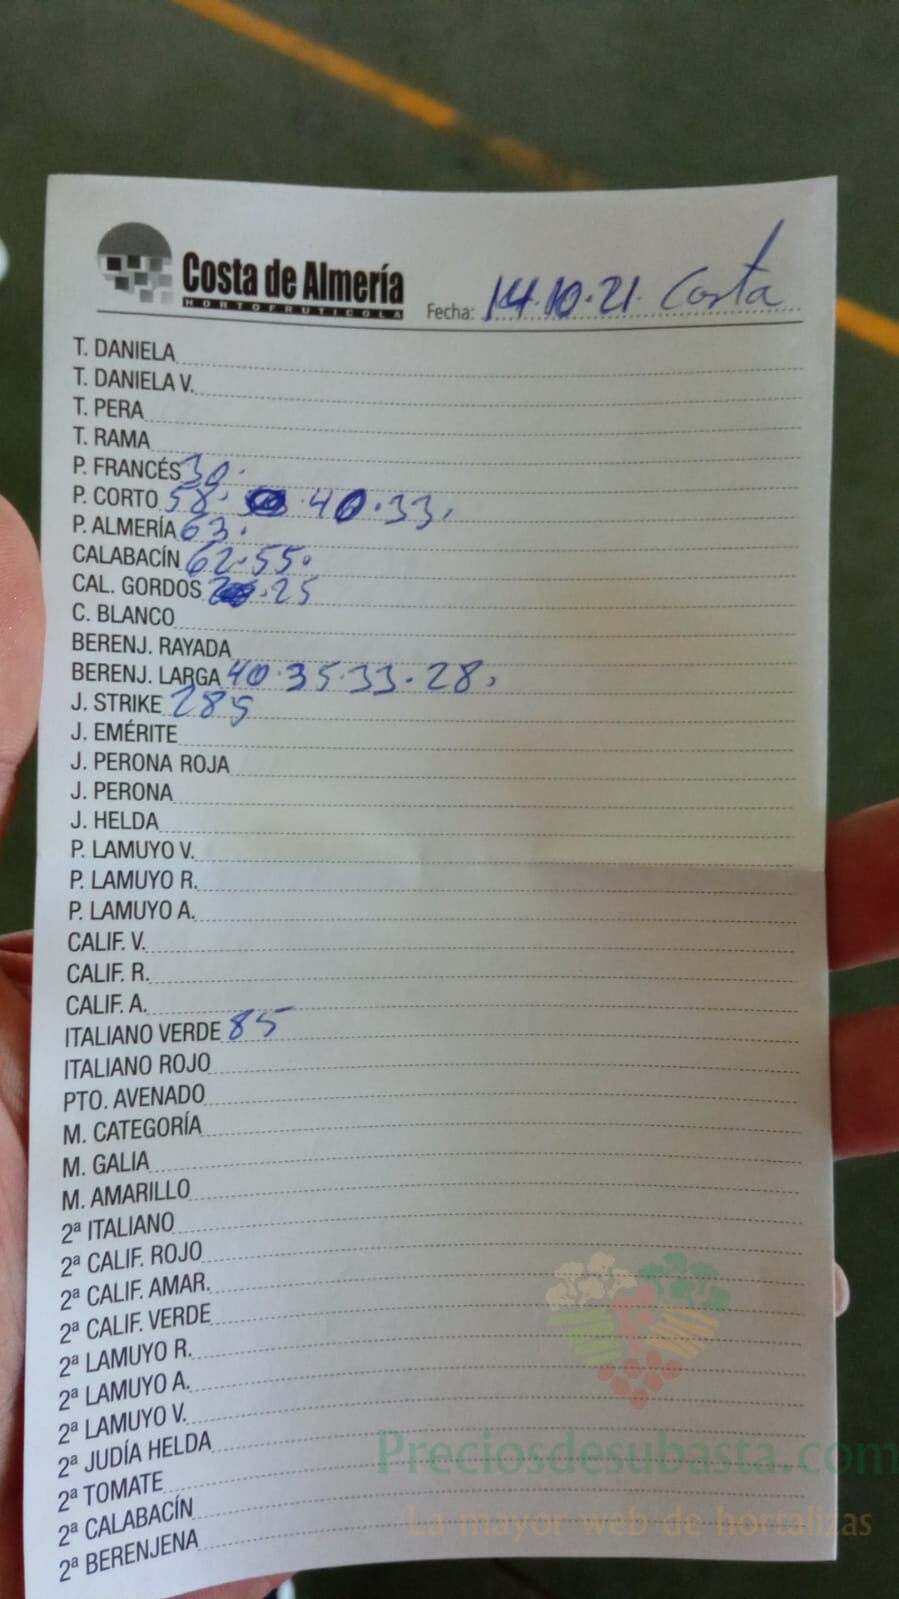 Costa de Almería
HORTOFRUTICOLA
Fecha: 14.10.21. Costa
T. DANIELA
T. DANIELA V.
T. PERA
T. RAMA
P. FRANCÉS 30.
P. CORTO 58. 40.33.
P. ALMERÍA 63.
CALABACÍN 62.55.
CAL. GORDOS .25
C. BLANCO
BERENJ. RAYADA
BERENJ. LARGA 40.35.33.28.
J. STRIKE 285
J. EMÉRITE
J. PERONA ROJA
J. PERONA
J. HELDA
P. LAMUYO V.
P. LAMUYO R.
P. LAMUYO A.
CALIF. V.
CALIF. R.
CALIF. A.
ITALIANO VERDE 85
ITALIANO ROJO
PTO. AVENADO
M. CATEGORÍA
M. GALIA
M. AMARILLO
2ª ITALIANO
2ª CALIF. ROJO
2ª CALIF. AMAR.
2ª CALIF. VERDE
2ª LAMUYO R.
2ª LAMUYO A.
2ª LAMUYO V.
2ª JUDÍA HELDA
2ª TOMATE
2ª CALABACÍN
2ª BERENJENA
Preciosdesubasta.com
La mayor web de hortalizas